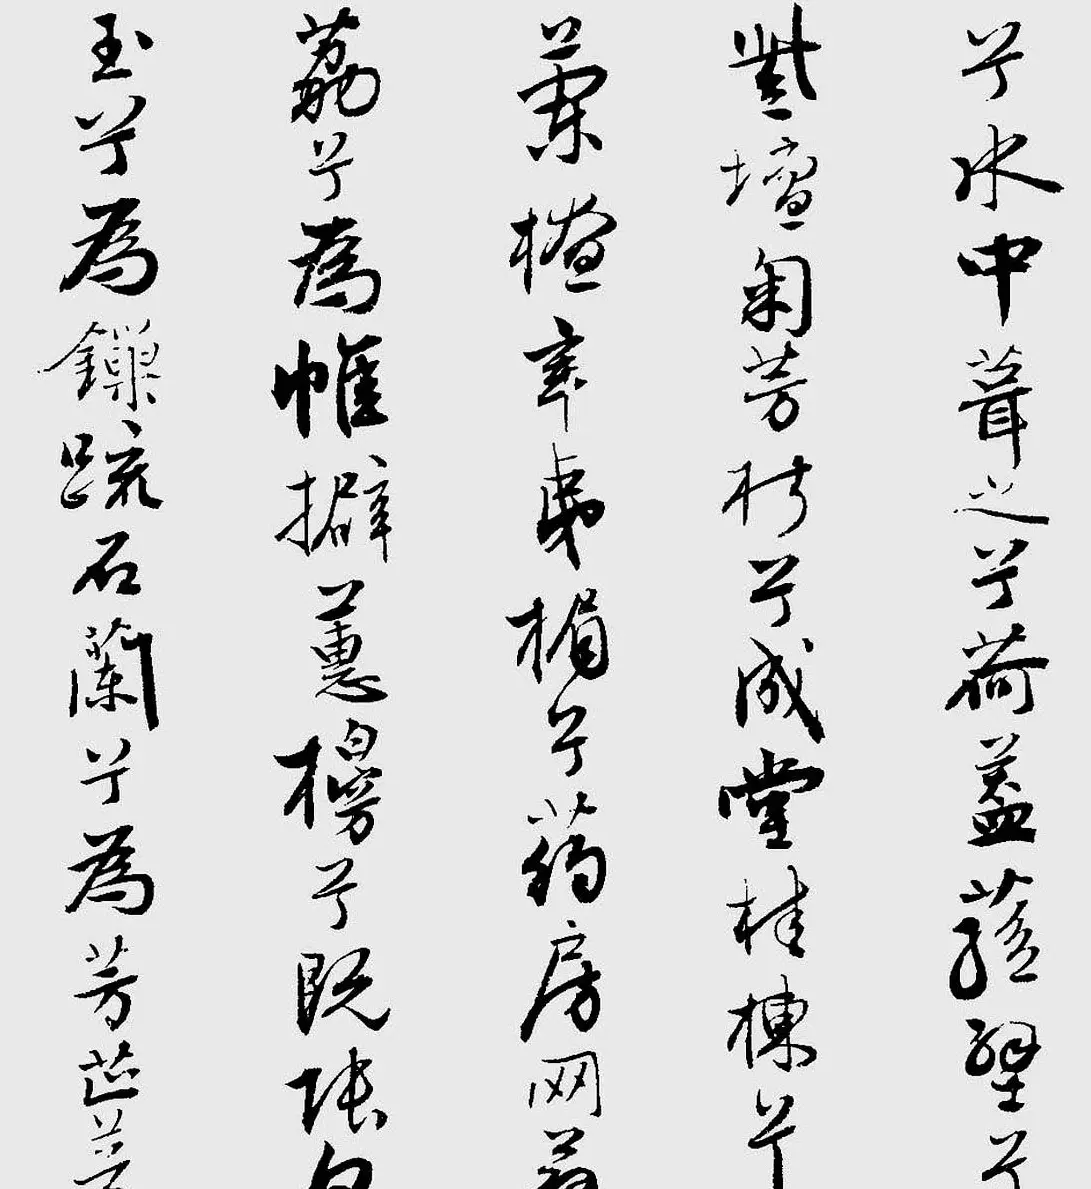 兮水中葺之兮荷蓋蓀壁兮
紫壇匊芳椒兮成堂桂棟兮
蘭橑辛夷楣兮葯房网
荔兮為帷擗蕙櫋兮既張白
玉兮為鎮疏石蘭兮為芳芷